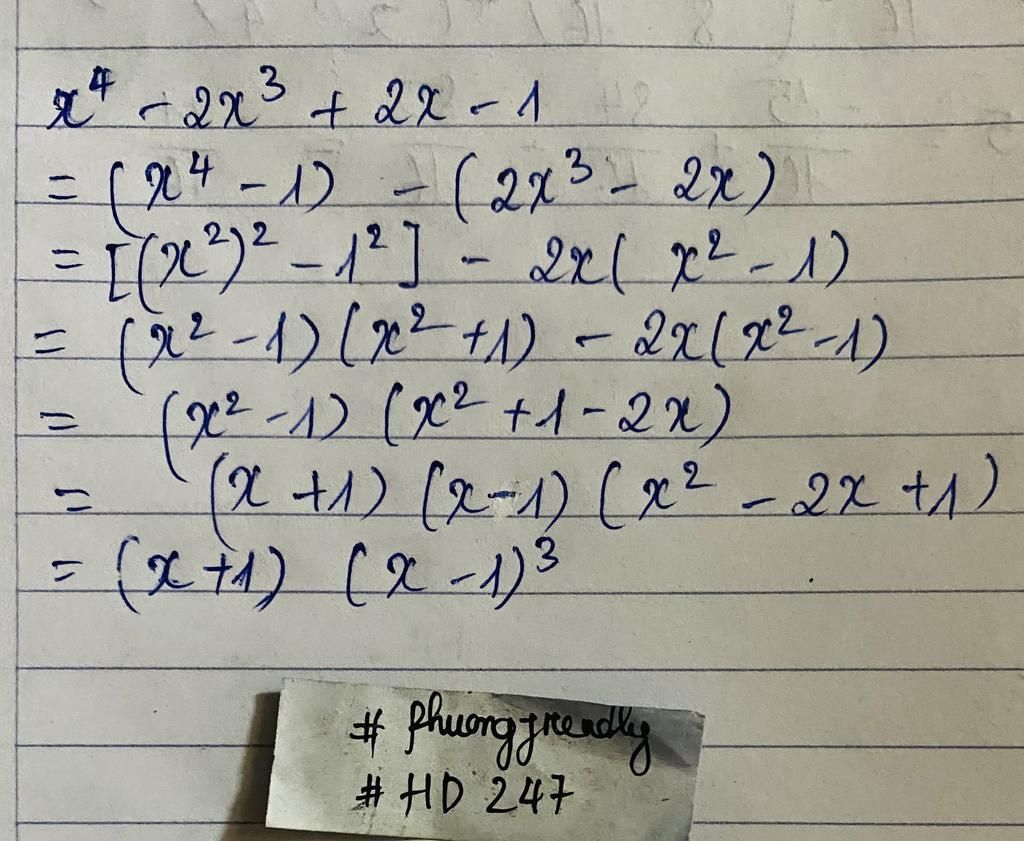 x⁴ - 2x³ + 2x - 1
= (x⁴ - 1) - (2x³ - 2x)
= [(x²)² - 1²] - 2x( x² - 1)
= (x² - 1) (x² + 1) - 2x(x² - 1)
= (x² - 1) (x² + 1 - 2x)
= (x + 1) (x - 1) (x² - 2x + 1)
= (x + 1) (x - 1)³
# HD 247